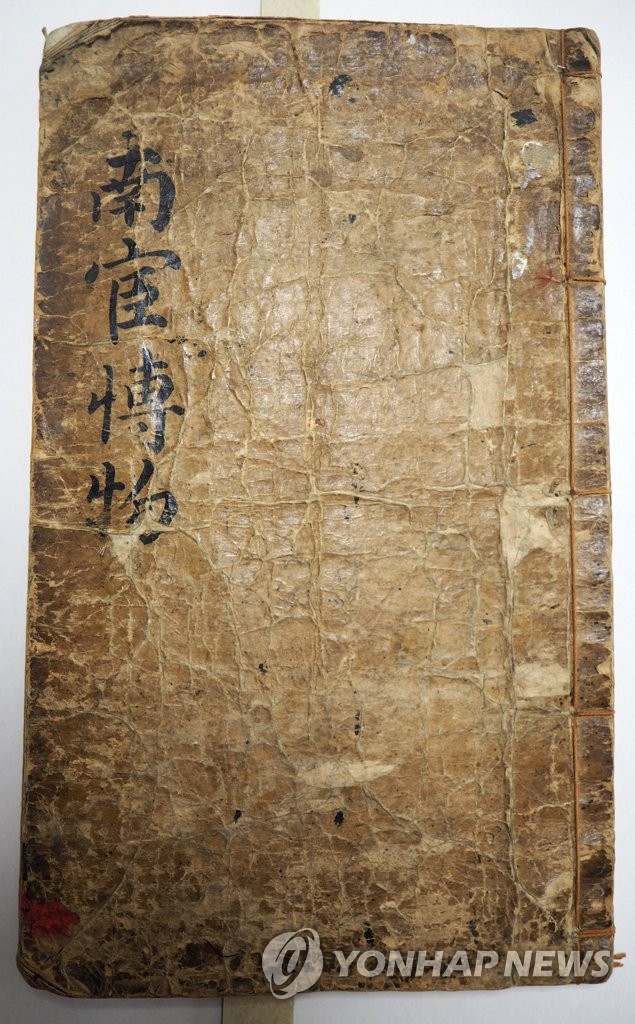 南宦博物
YONHAP NEWS